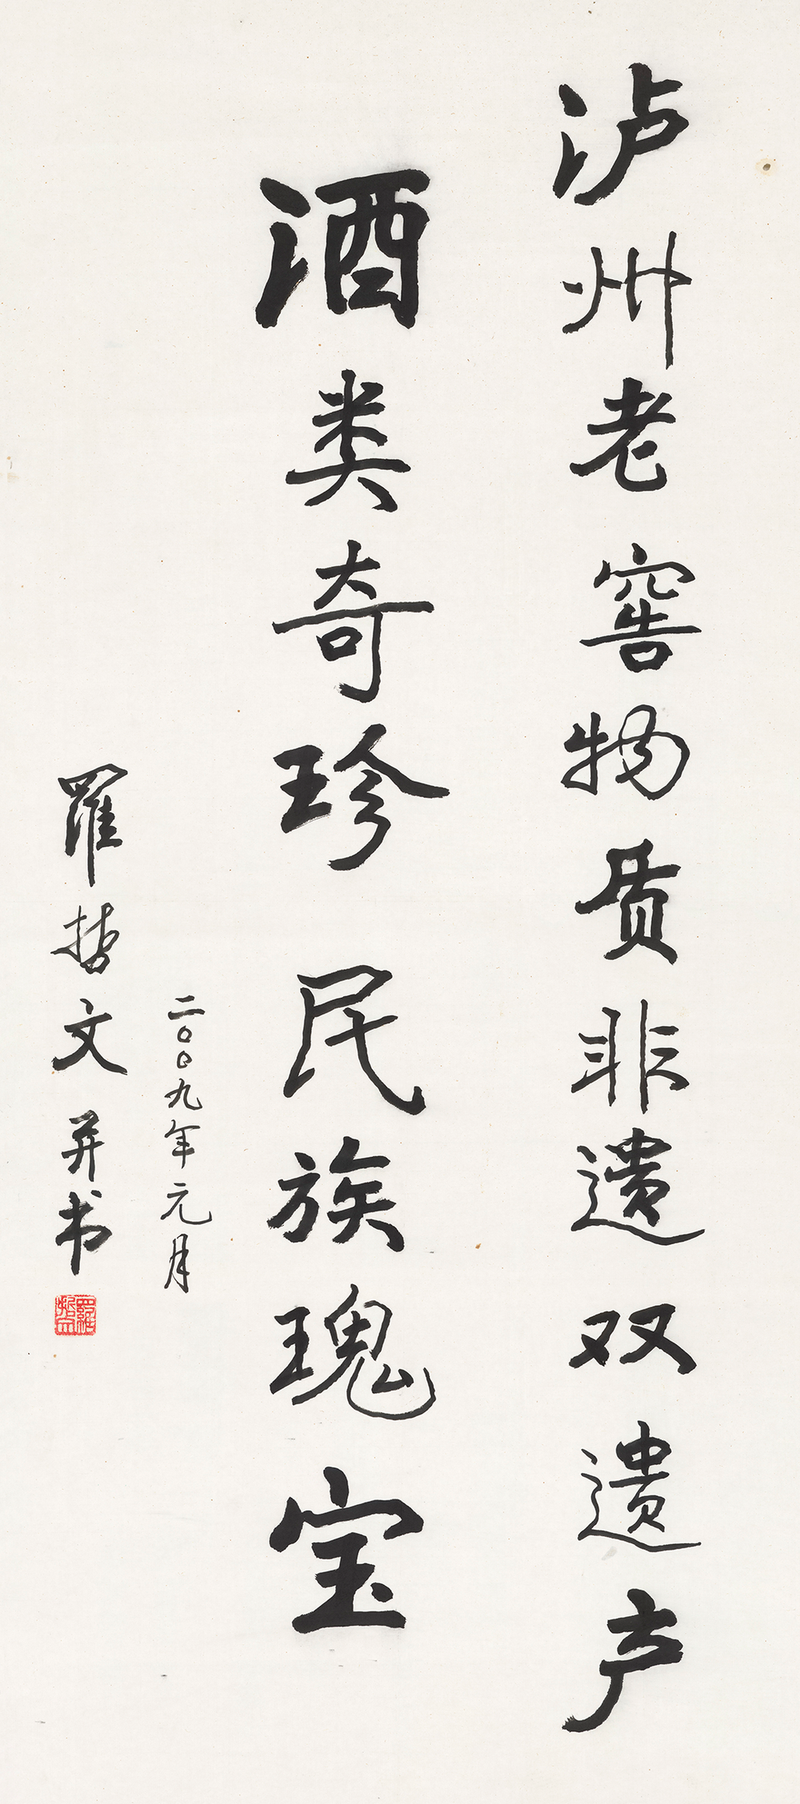 泸州老窖物质非遗双遗产
酒类奇珍 民族瑰宝
二〇〇九年元月
罗哲文并书